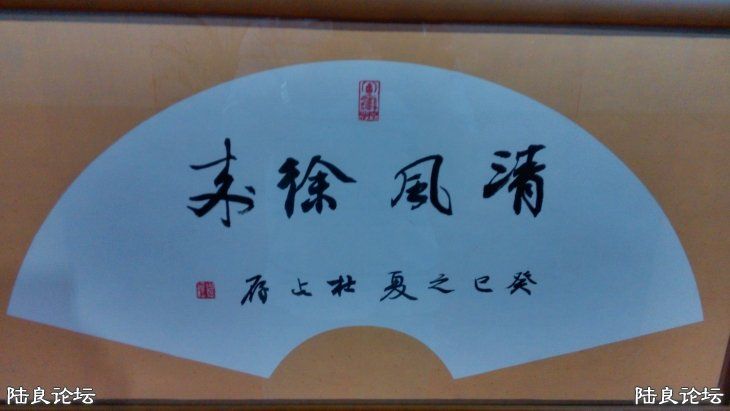 清風徐来
癸巳之夏杜上存
陆良论坛
陆良论坛